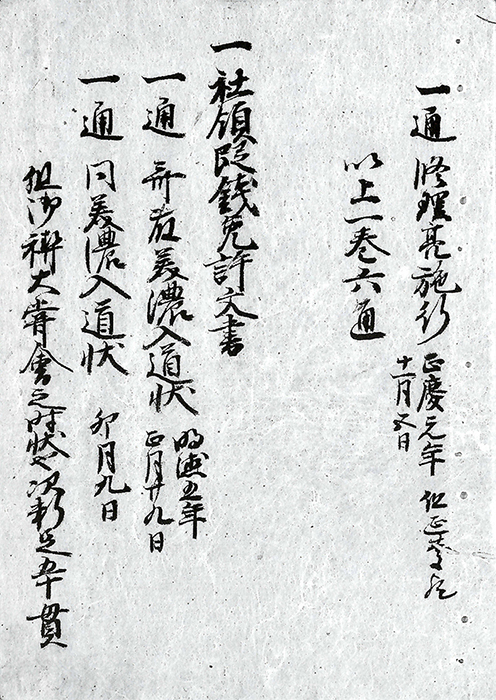 一通 修理亮施行 正慶元年
十一月五日 但正文
以上一巻六通
一社領段銭免許文書
一通 斎藤美濃入道状 明徳五年
正月廿九日
一通 同美濃入道状 卯月九日
但御禊大嘗會之時状也 次新足五十貫